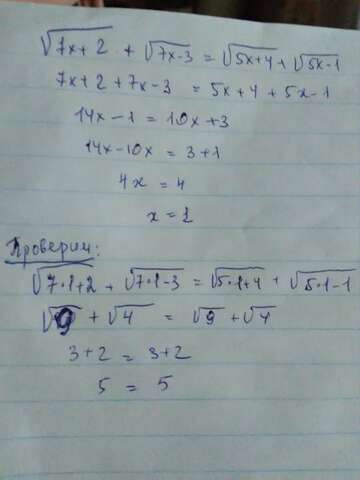 √7x+2 + √7x-3 = √5x+4 + √5x-1
7x+2+7x-3 = 5x+4+5x-1
14x-1 = 10x+3
14x-10x = 3+1
4x = 4
x = 1
Проверим:
√7·1+2 + √7·1-3 = √5·1+4 + √5·1-1
√9 + √4 = √9 + √4
3+2 = 3+2
5 = 5